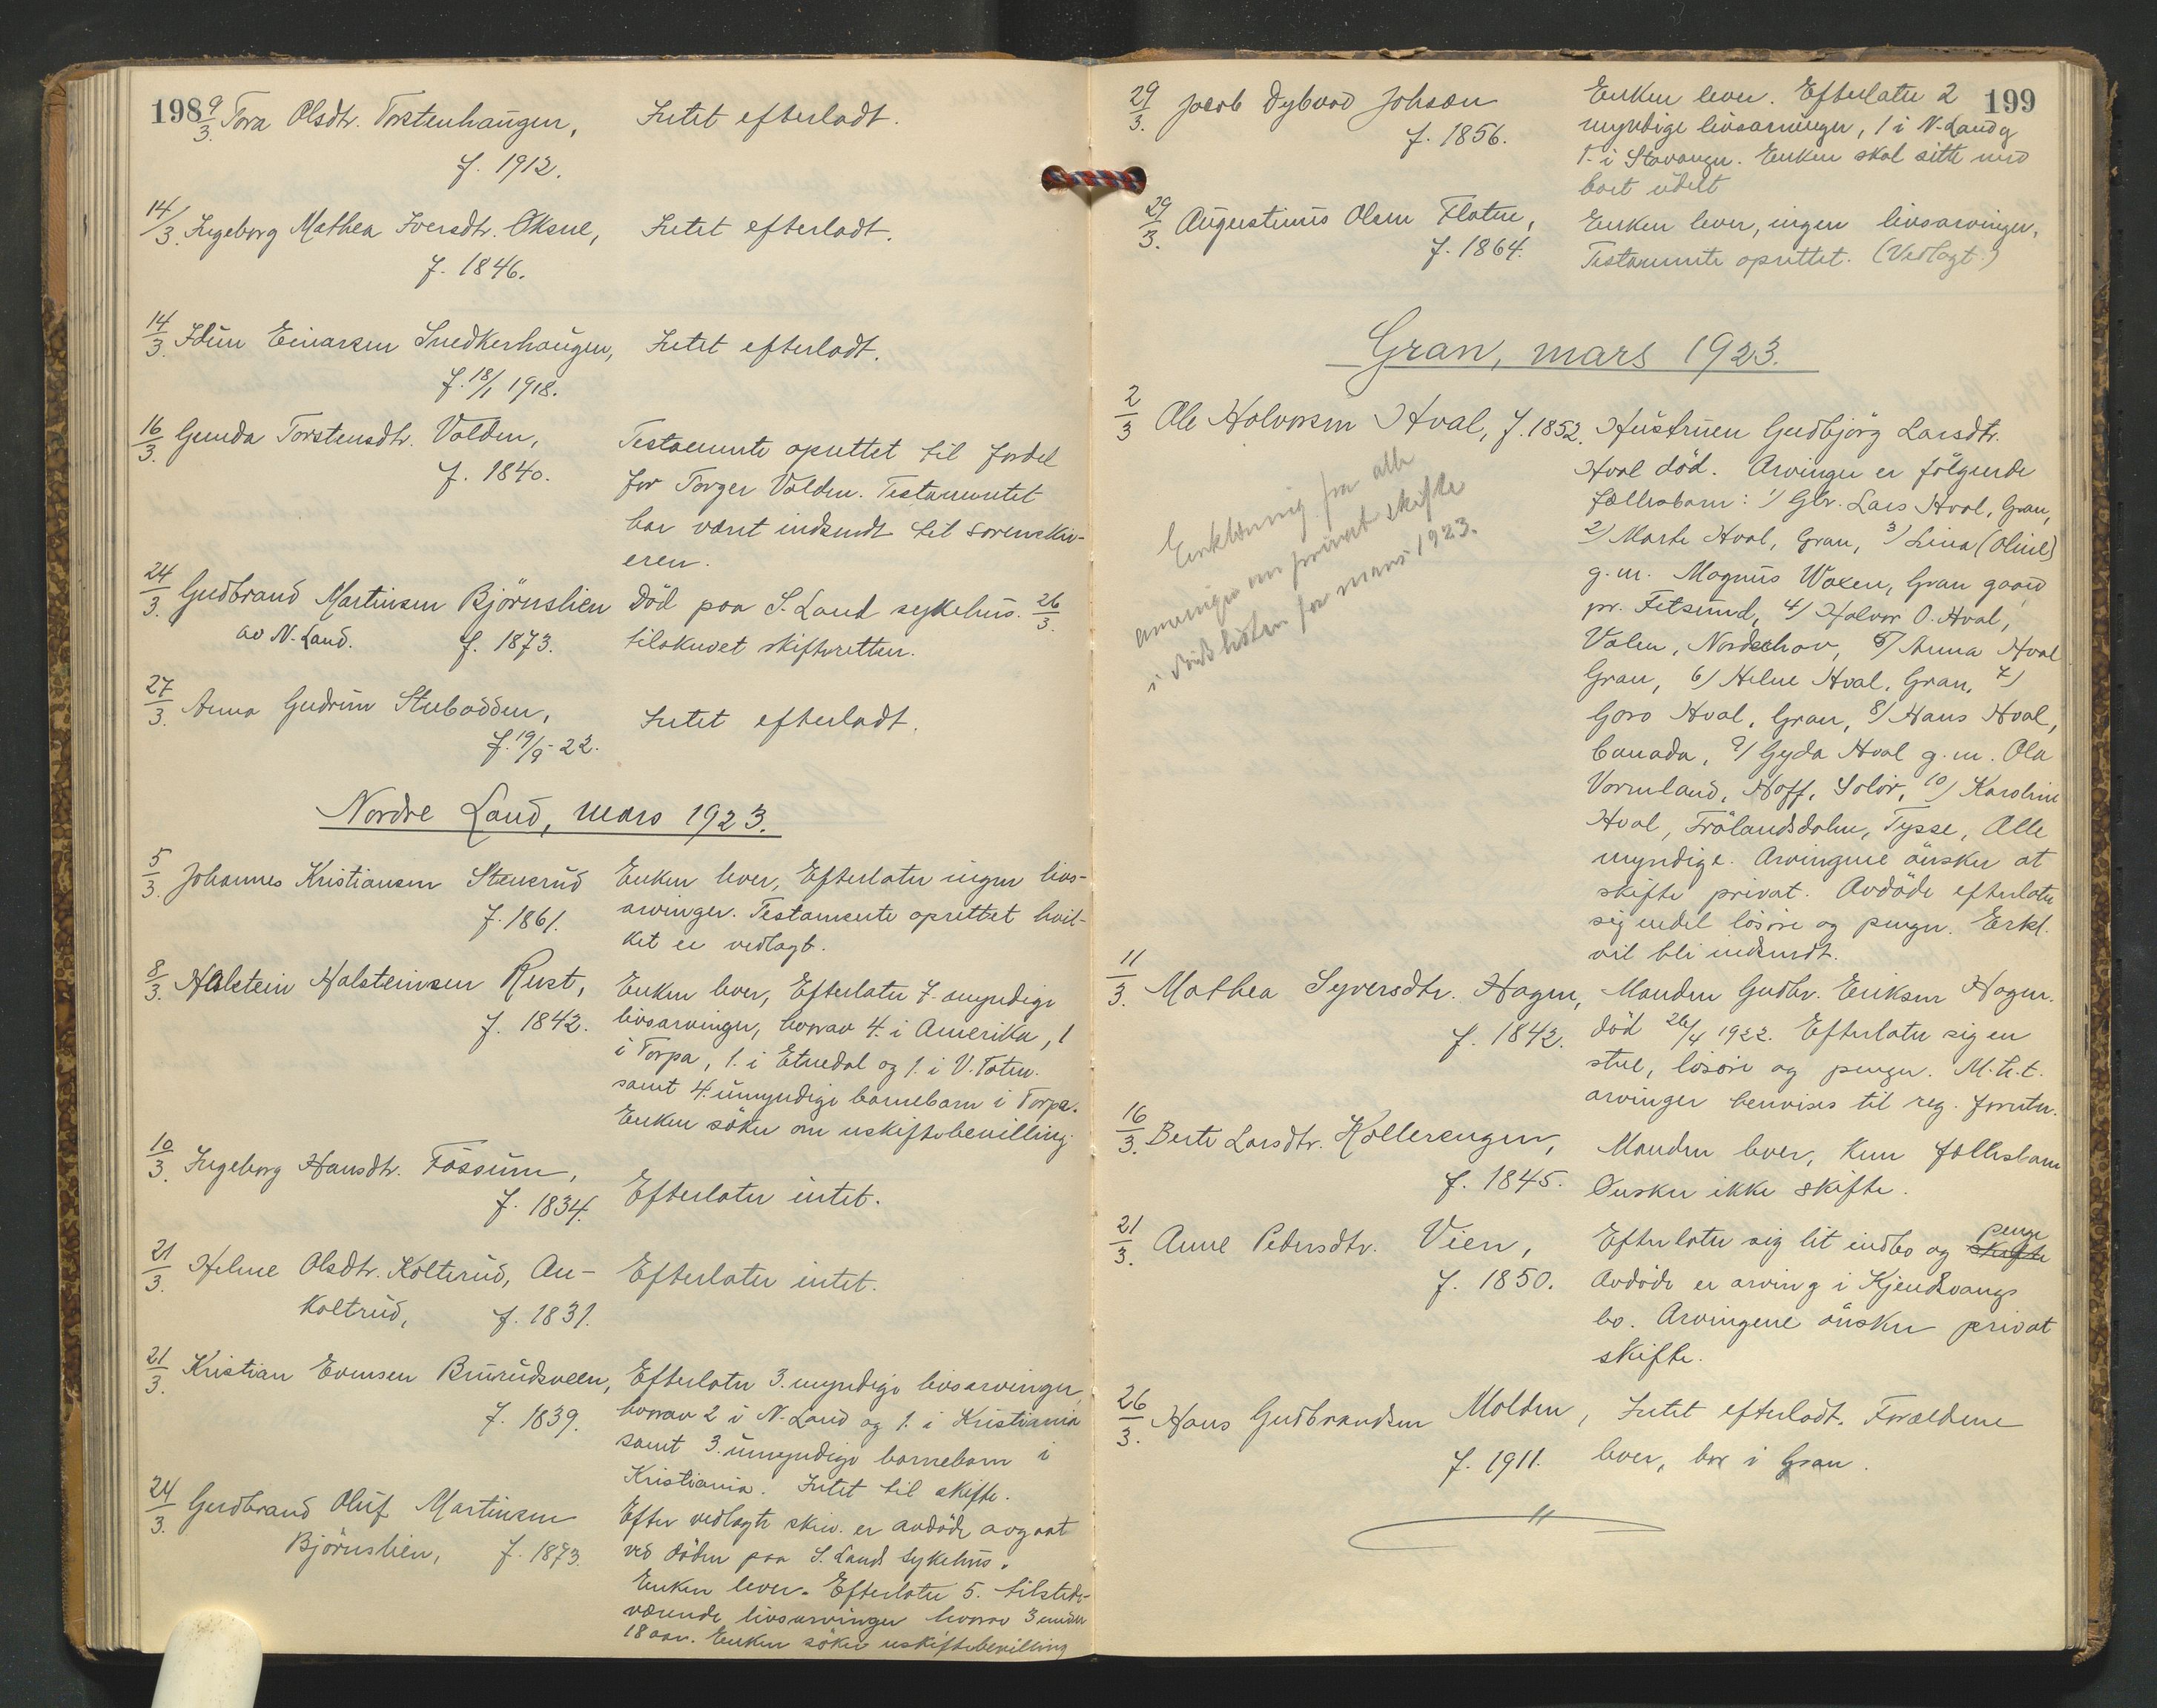 198
9/3. Tora Olsdtr. Torstenhaugen, Intet efterladt.
f. 1912.
14/3. Ingeborg Mathea Iversdtr. Oksne, Intet efterladt.
f. 1846.
14/3. Idun Einarsen Snedkerhaugen, Intet efterladt.
f. 18/1 1918.
16/3. Gunda Torstensdtr. Volden,
f. 1840.
Testamente oprettet til fordel
for Torger Volden. Testamentet
har været indsendt til sorenskri-
eren.
24/3. Gudbrand Martinsen Björnslien
av N. Land. f. 1873.
Död paa S. Land sykehus. 26/3.
tilskrevet skifteretten.
27/3. Anna Gudrun Stubadden,
f. 19/9 - 22.
Intet efterladt.
Nordre Land, mars 1923.
5/3. Johannes Kristiansen Stensrud
f. 1861.
Enken lever, Efterlater ingen livs-
arvinger. Testamente oprettet hvil-
ket er vedlagt.
8/3. Halstein Halsteinsen Rust,
f. 1842.
Enken lever, Efterlater 7 myndige
livsarvinger, hvorav 4. i Amerika, 1
i Torpa, 1. i Etnedal og 1. i V. Toten.
samt 4. umyndige barnebarn i Torpa.
Enken söker om uskiftebevilling.
10/3. Ingeborg Hansdtr. Fossum,
f. 1834.
Efterlater intet.
21/3. Helene Olsdtr. Kolterud, Au-
Koltrud, f. 1831.
Efterlater intet.
21/3. Kristian Evensen Brurudsveen,
f. 1839.
Efterlater 3. myndige livsarvinger
hvorav 2 i N. Land og 1. i Kristiania
samt 3. umyndige barnebarn i
Kristiania. Intet til skifte.
24/3. Gudbrand Oluf Martinsen
Björnslien, f. 1873.
Efter vedlagte skriv. er avdöde avgaat
ved döden paa S. Land Sykehus.
Enken lever. Efterlater 5. tilstede-
værende livsarvinger hvorav 3 under
18 aar. Enken söker uskiftebevilling
199
29/3. Jacob Dybvad Johsen
f. 1856.
Enken lever. Efterlater 2
myndige livsarvinger, 1 i N-Land og
1. i Stavanger. Enken skal sitte med
boet udelt
29/3. Augustinus Olsen Flaten,
f. 1864.
Enken lever, ingen livsarvinger,
Testamente oprettet. (Vedlagt)
Gran, mars 1923.
2/3 Ole Halvorsen Hval, f. 1852.
Erklæring fra alle
arvinger om privat skifte
i dödslisten for mars 1923.
Hustruen Gudbjörg Larsdtr.
Hval död. Arvinger er fölgende
fællesbarn: 1/ Gbr. Lars Hval, Gran,
2/ Marte Hval, Gran, 3/ Lina (Oline)
g. m. Magnus Woxen, Gran gaard
pr. Fetsund, 4/ Halvor O. Hval,
Valen, Norderhov, 5/ Anna Hval
Gran, 6/ Helene Hval, Gran, 7/
Goro Hval, Gran, 8/ Hans Hval,
Canada, 9/ Gyda Hval g. m. Ola
Vormland, Hoff, Solör, 10/ Karoline
Hval, Frölandsdalen, Tysse, Alle
myndige. Arvingene önsker at
skifte privat. Avdöde efterlater
sig endel lösöre og penger. Erkl.
vil bli indsendt.
11/3. Mathea Syversdtr. Hagen,
f. 1842.
Manden Gudbr. Eriksen Hagen.
död 26/4 1922. Efterlater sig en
stue, lösöre og penger. M. h. t.
arvinger henvises til reg. foruten.
16/3. Berte Larsdtr. Hollerengen,
f. 1845.
Manden lever, Kun fællesbarn
Önsker ikke skifte.
21/3. Anne Pedersdtr. Vien,
f. 1850.
Efterlater sig lit indbo og penge
Avdöde er arving i Kjendsvangs
bo. Arvingene önsker privat
skifte.
26/3. Hans Gudbrandsen Molden,
f. 1911.
Intet efterladt. Forældrene
lever, bor i Gran.